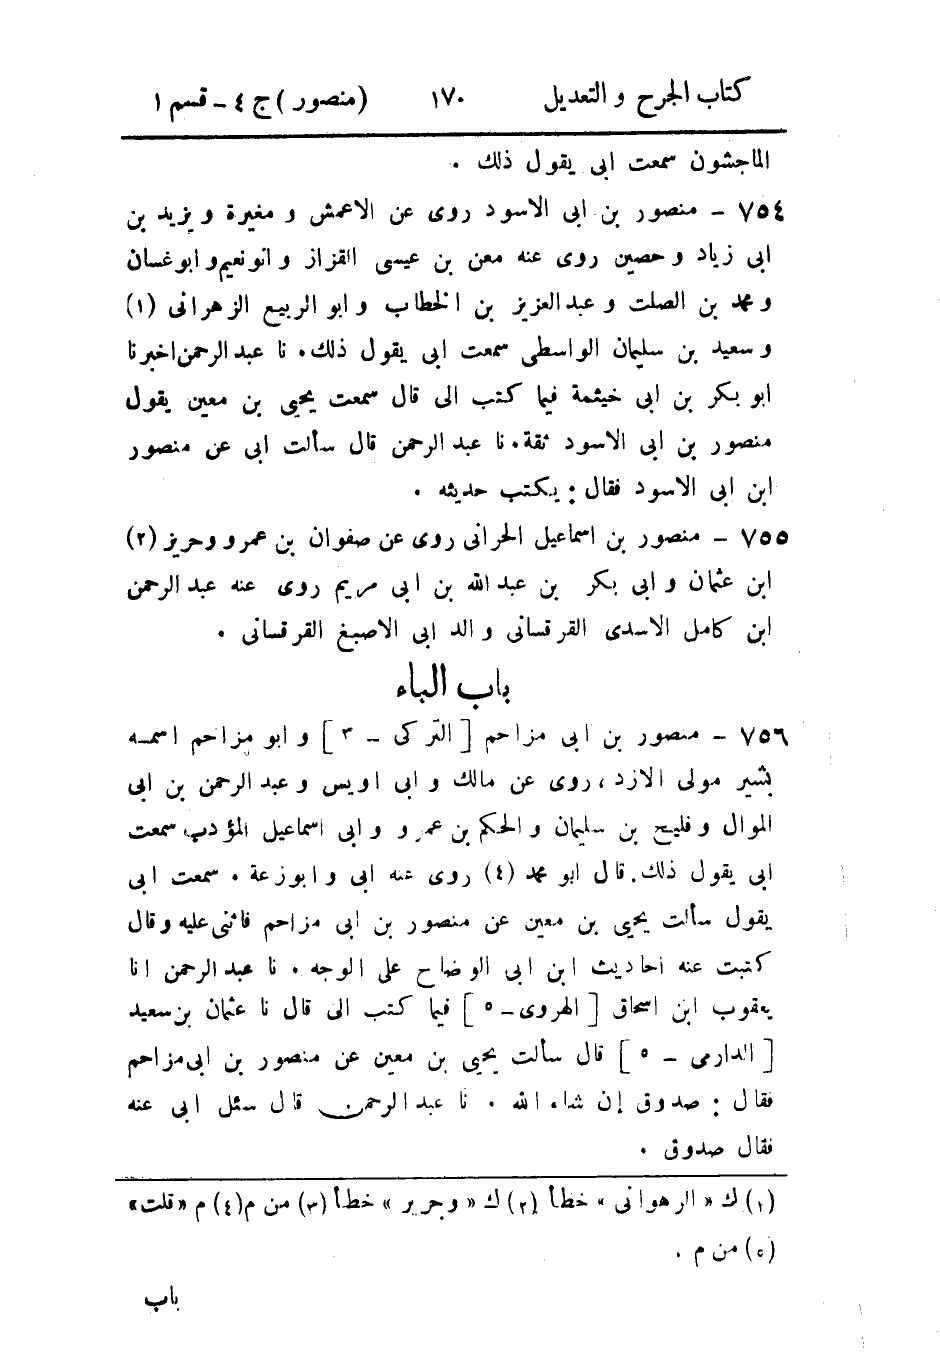 كتاب الجرح و التعديل ١٧٠ (منصور) ج ٤ - قسم ١
الماجشون سمعت ابى يقول ذلك .
٧٥٤ - منصور بن ابى الاسود روى عن الاعمش و مغيرة و يزيد بن
ابى زياد و حصين روى عنه معن بن عيسى القزاز و ابو نعيم و ابو غسان
و محمد بن الصلت و عبد العزيز بن الخطاب و ابو الربيع الزهرانى (١)
و سعيد بن سليمان الواسطى سمعت ابى يقول ذلك . نا عبد الرحمن اخبرنا
ابو بكر بن ابى خيثمة فيما كتب الى قال سمعت يحيى بن معين يقول
منصور بن ابى الاسود ثقة . نا عبد الرحمن قال سألت ابى عن منصور
ابن ابى الاسود فقال : يكتب حديثه .
٧٥٥ - منصور بن اسماعيل الحرانى روى عن صفوان بن عمرو وحريز (٢)
ابن عثمان و ابى بكر بن عبد الله بن ابى مريم روى عنه عبد الرحمن
ابن كامل الاسدى القرقسانى والد ابى الاصبغ القرقسانى .
باب الباء
٧٥٦ - منصور بن ابى مزاحم [ التركى - ٣ ] و ابو مزاحم اسمه
بشير مولى الازد ، روى عن مالك و ابى اويس و عبد الرحمن بن ابى
الموال و فليح بن سليمان و الحكم بن عمرو و ابى اسماعيل المؤدب سمعت
ابى يقول ذلك . قال ابو محمد (٤) روى عنه ابى و ابو زرعة . سمعت ابى
يقول سألت يحيى بن معين عن منصور بن ابى مزاحم فاثنى عليه و قال
كتبت عنه احاديث ابن ابى الوضاح على الوجه . نا عبد الرحمن انا
يعقوب ابن اسحاق [ الهروى - ٥ ] فيما كتب الى قال نا عثمان بن سعيد
[ الدارمى - ٥ ] قال سألت يحيى بن معين عن منصور بن ابى مزاحم
فقال : صدوق إن شاء الله . نا عبد الرحمن قال سئل ابى عنه
فقال صدوق .
(١) ك « الرهوانى » خطأ (٢) ك « وجرير » خطأ (٣) من م (٤) م « قلت »
(٥) من م .
باب